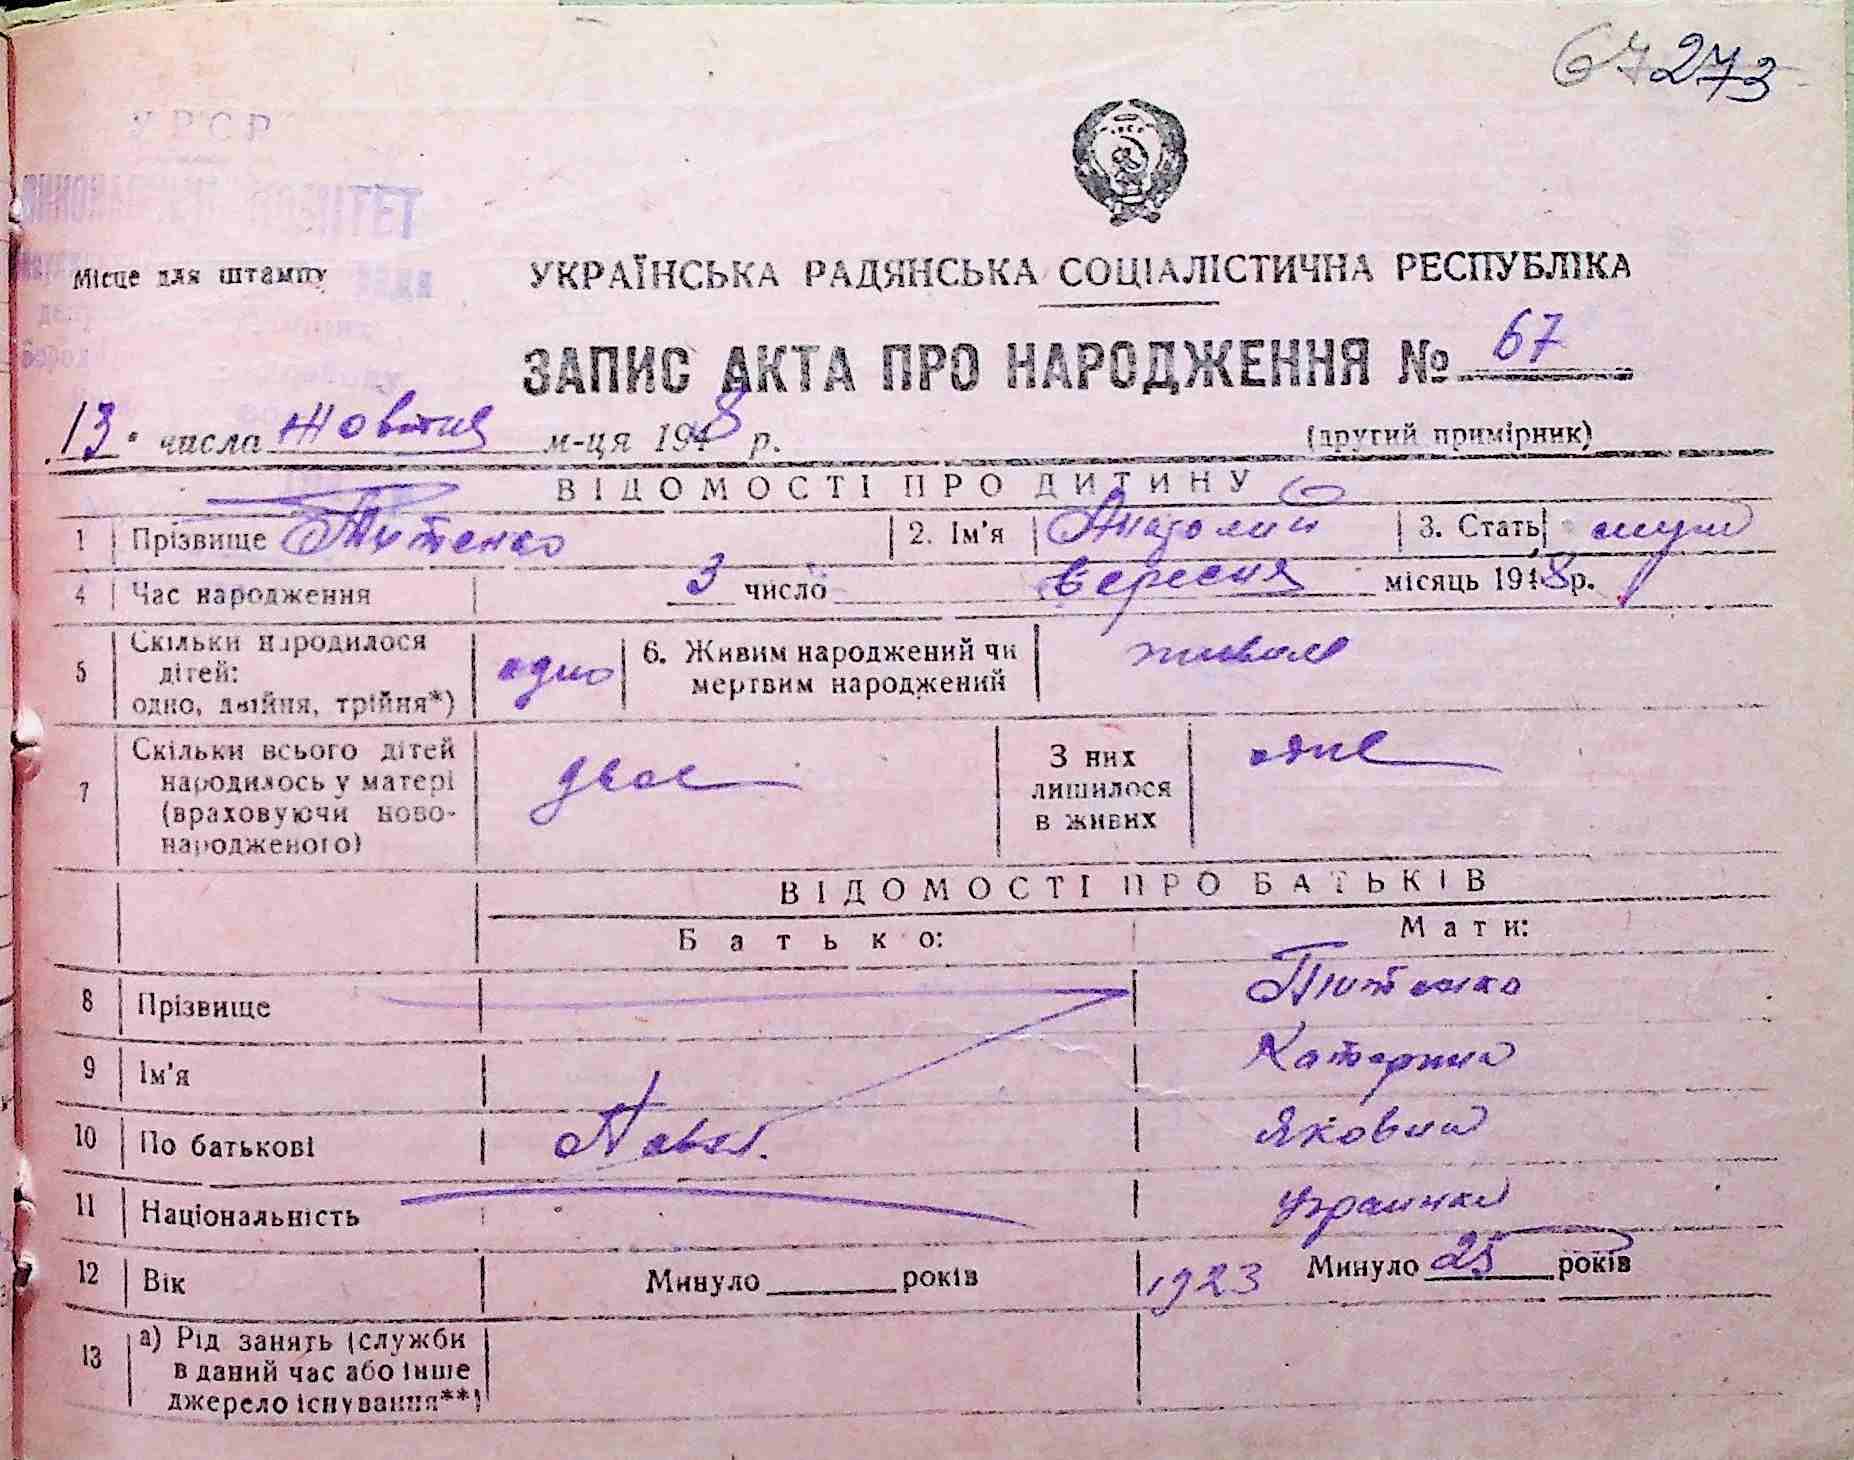 67 273
УРСР
КОМІТЕТ
Місце для штампу
УКРАЇНСЬКА РАДЯНСЬКА СОЦІАЛІСТИЧНА РЕСПУБЛІКА
ЗАПИС АКТА ПРО НАРОДЖЕННЯ № 67
13 числа Жовтня м-ця 1948 р. (другий примірник)
ВІДОМОСТІ ПРО ДИТИНУ
1 Прізвище Титенко 2. Ім'я Анатолий 3. Стать муж
4 Час народження 3 число вересня місяць 1948 р.
5 Скільки народилося дітей: одно, двійня, трійня*) одно 6. Живим народжений чи мертвим народжений живим
7 Скільки всього дітей народилось у матері (враховуючи новонародженого) двое З них лишилося в живих одне
ВІДОМОСТІ ПРО БАТЬКІВ
Батько: Мати:
8 Прізвище Титенко
9 Ім'я Катерина
10 По батькові Павел. Яковна
11 Національність украинка
12 Вік Минуло років 1923 Минуло 25 років
13 а) Рід занять (служби
в даний час або інше
джерело існування**)